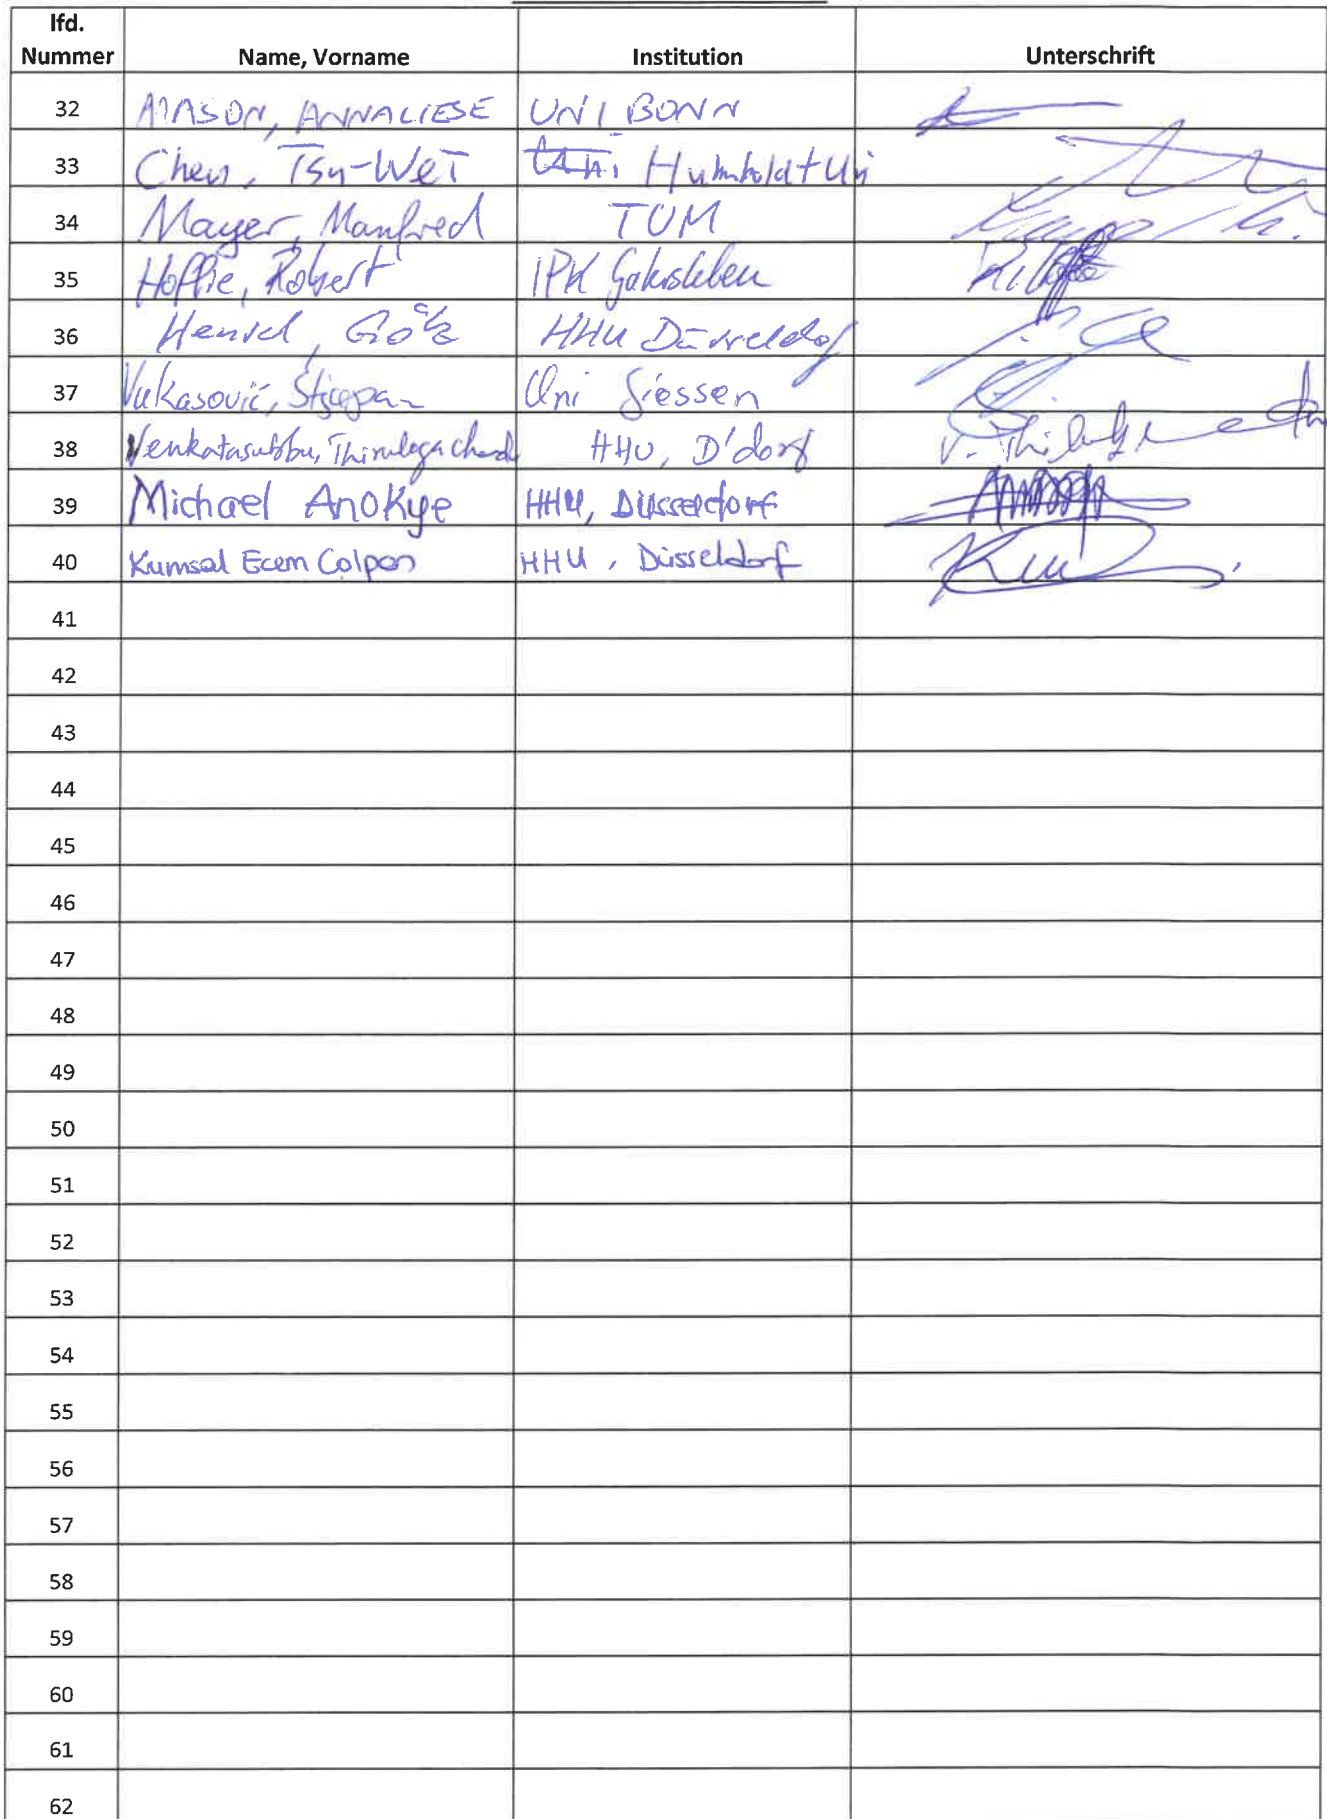 lfd. Nummer Name, Vorname Institution Unterschrift
32 MASON, ANNALIESE UNI BONN
33 Chen, Tsu-Wei Humboldt Uni
34 Mayer, Manfred TUM
35 Hoffie, Robert IPK Gatersleben
36 Hensel, Götz HHU Düsseldorf
37 Vukasović, Stjepan Uni Giessen
38 Venkatasubbu, HHU, D'dorf
39 Michael Anokye HHU, Düsseldorf
40 Kumsal Ecem Colpan HHU, Düsseldorf
41
42
43
44
45
46
47
48
49
50
51
52
53
54
55
56
57
58
59
60
61
62